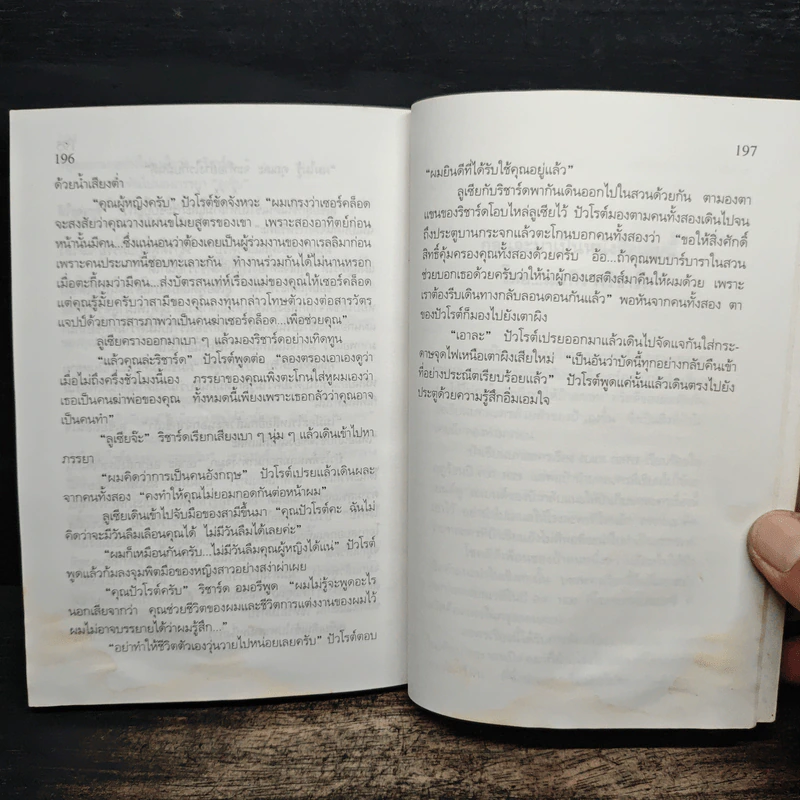 196
ด้วยน้ำเสียงต่ำ
“คุณผู้หญิงครับ” ปัวโรต์ขัดจังหวะ “ผมเกรงว่าเซอร์คล็อด
จะสงสัยว่าคุณวางแผนขโมยสูตรของเขา เพราะสองอาทิตย์ก่อน
หน้านั้นมีคน...ซึ่งแน่นอนว่าต้องเคยเป็นผู้ร่วมงานของคาเรลลิมาก่อน
เพราะคนประเภทนี้ชอบทะเลาะกัน ทำงานร่วมกันได้ไม่นานหรอก
เมื่อตะกี้ผมว่ามีคน...ส่งบัตรสนเท่ห์เรื่องแม่ของคุณให้เซอร์คล็อด
แต่คุณรู้มั้ยครับว่าสามีของคุณลงทุนกล่าวโทษตัวเองต่อสารวัตร
แจปป์ด้วยการสารภาพว่าเป็นคนฆ่าเซอร์คล็อด...เพื่อช่วยคุณ”
ลูเซียครางออกมาเบา ๆ มองริชาร์ดอย่างเทิดทูน
“แล้วคุณล่ะริชาร์ด” ปัวโรต์พูดต่อ “ลองตรองเอาเองดูว่า
เมื่อไม่ถึงครึ่งชั่วโมงนี้เอง ภรรยาของคุณเพิ่งตะโกนใส่หูผมเองว่า
เธอเป็นคนฆ่าพ่อของคุณ ทั้งหมดนี้เพียงเพราะเธอกลัวว่าคุณอาจ
เป็นคนทำ”
“ลูเซียจ๊ะ” ริชาร์ดเรียกเสียงเบา ๆ นุ่ม ๆ แล้วเดินเข้าไปหา
ภรรยา
“ผมคิดว่าการเป็นคนอังกฤษ” ปัวโรต์เปรยแล้วเดินผละ
จากคนทั้งสอง “คงทำให้คุณไม่ยอมกอดกันต่อหน้าผม”
ลูเซียเดินเข้าไปจับมือของสามีขึ้นมา “คุณปัวโรต์คะ ฉันไม่
คิดว่าจะมีวันลืมเลือนคุณได้ ไม่มีวันลืมได้เลยค่ะ”
“ผมก็เหมือนกันครับ...ไม่มีวันลืมคุณผู้หญิงได้แน่” ปัวโรต์
พูดแล้วก้มลงจุมพิตมือของหญิงสาวอย่างสง่าผ่าเผย
“คุณปัวโรต์ครับ” ริชาร์ด อมอรีพูด “ผมไม่รู้จะพูดอะไร
นอกเสียจากว่า คุณช่วยชีวิตของผมและชีวิตการแต่งงานของผมไว้
ผมไม่อาจบรรยายได้ว่าผมรู้สึก...”
“อย่าทำให้ชีวิตตัวเองวุ่นวายไปหน่อยเลยครับ” ปัวโรต์ตอบ
197
“ผมยินดีที่ได้รับใช้คุณอยู่แล้ว”
ลูเซียกับริชาร์ดพากันเดินออกไปในสวนด้วยกัน ตามองตา
แขนของริชาร์ดโอบไหล่ลูเซียไว้ ปัวโรต์มองตามคนทั้งสองเดินไปจน
ถึงประตูบานกระจกแล้วตะโกนบอกคนทั้งสองว่า “ขอให้สิ่งศักดิ์
สิทธิ์คุ้มครองคุณทั้งสองด้วยครับ อ้อ...ถ้าคุณพบบาร์บาราในสวน
ช่วยบอกเธอด้วยครับว่าให้นำผู้กองเฮสติงส์มาคืนให้ผมด้วย เพราะ
เราต้องรีบเดินทางกลับลอนดอนกันแล้ว” พอหันจากคนทั้งสอง ตา
ของปัวโรต์ก็มองไปยังเตาผิง
“เอาละ” ปัวโรต์เปรยออกมาแล้วเดินไปจัดแจกันใส่กระ-
ดาษจุดไฟเหนือเตาผิงเสียใหม่ “เป็นอันว่าบัดนี้ทุกอย่างกลับคืนเข้า
ที่อย่างประณีตเรียบร้อยแล้ว” ปัวโรต์พูดแค่นั้นแล้วเดินตรงไปยัง
ประตูด้วยความรู้สึกอิ่มเอมใจ